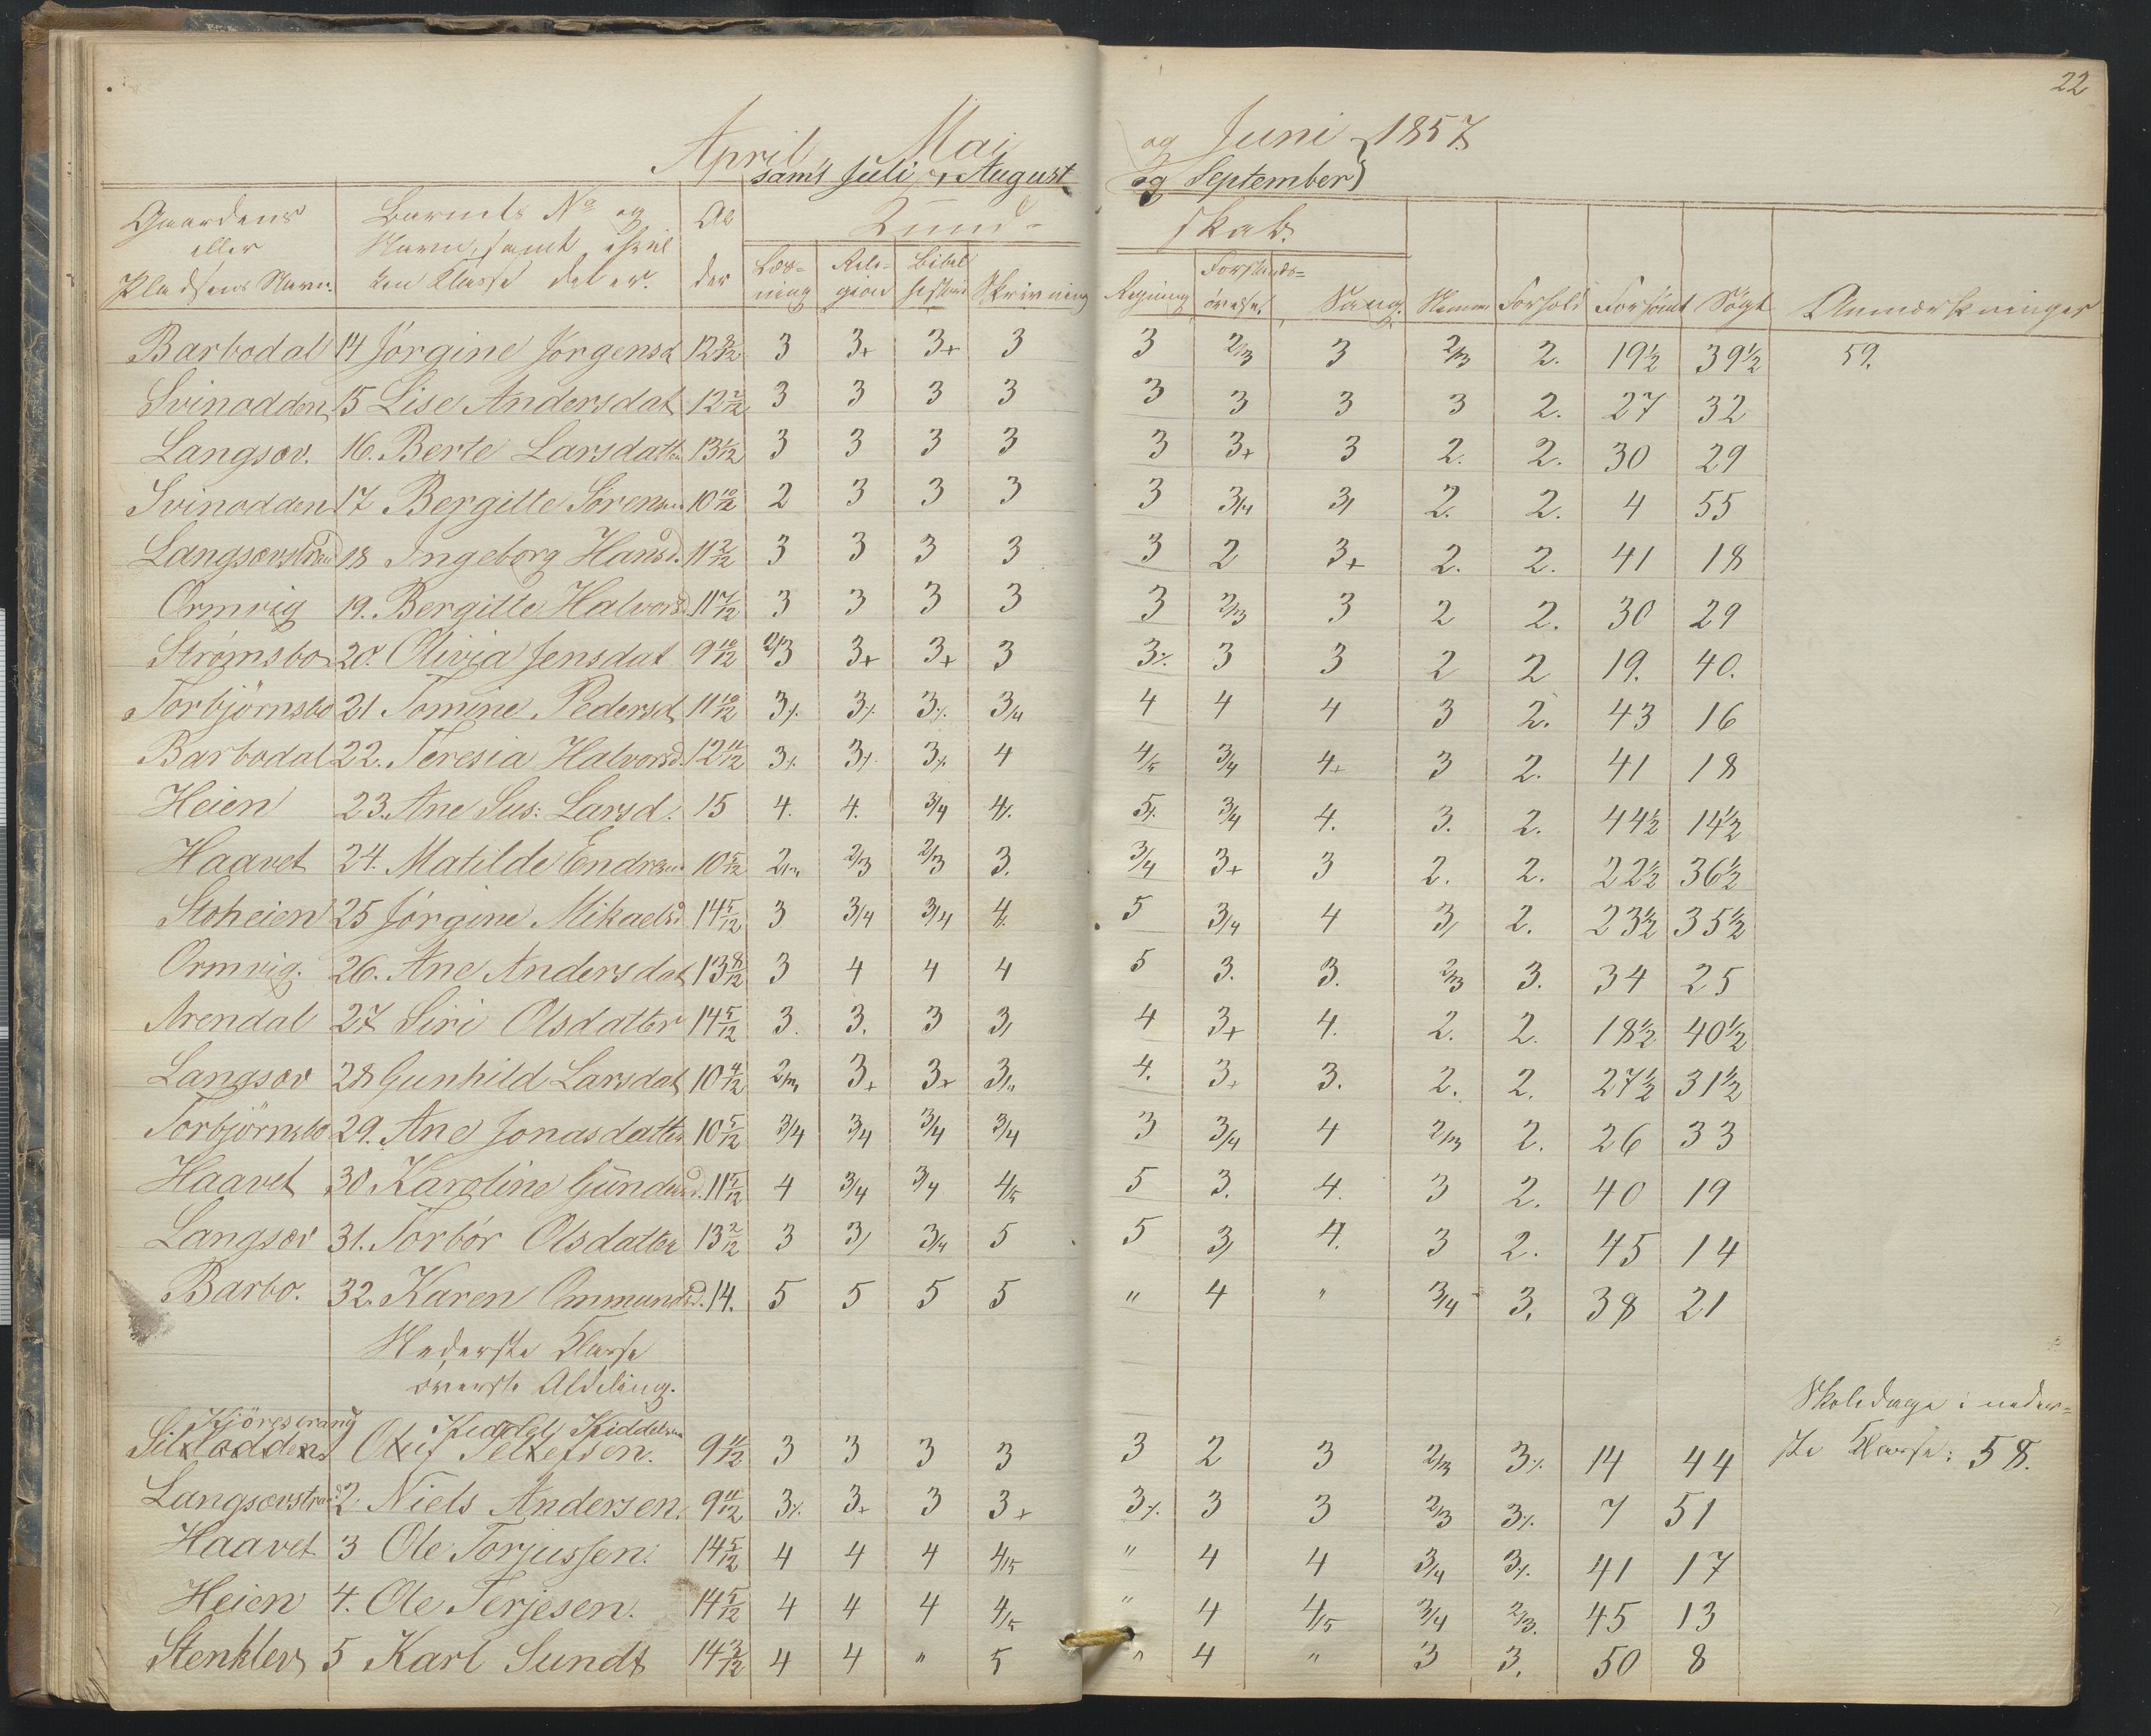 22
April, Mai og Juni 1857.
samt Juli, August og September
Gaardens eller Pladsens Navn.
Barnets No og Navn, samt i hvilken Classe det er.
Alder
Kundskab.
Læsning Religion Bibelhistorie Skrivning Regning Forstandsøvelse Sang. Nemme Forhold Forsömt Sögt Anmærkninger
Barbodal 14 Jörgine Jörgensd 12 9/12 3 3+ 3+ 3 3 2/3 3 2/3 2. 19½ 39½ 59.
Svinodden 15 Lise Andersdat 12 2/12 3 3 3 3 3 3 3 3 2. 27 32
Langsæv. 16. Berte Larsdatter 13 1/12 3 3 3 3 3 3+ 3 2. 2. 30 29
Svinodden 17 Bergitte Sörensd 10 10/12 2 3 3 3 3 3/4 3/ 2. 2. 4 55
Langsævstrand 18 Ingeborg Hansd. 11 2/12 3 3 3 3 3 2 3+ 2. 2. 41 18
Ormvig 19. Bergitte Halvorsd. 11 7/12 3 3 3 3 3 2/3 3 2 2. 30 29
Strømsbo 20. Olivia Jensdat 9 10/12 2/3 3+ 3+ 3 3% 3 3 2 2 19. 40.
Torbjörnsbo 21 Tomine Pedersd 11 10/12 3% 3% 3% 3/4 4 4 4 3 2. 43 16
Barbodal 22. Teresia Halvorsd. 12 11/12 3% 3% 3% 4 4/5 3/4 4+ 3 2. 41 18
Heien 23. Ane Sus: Larsd. 15 4. 4. 3/4 4% 5% 3/4 4. 3. 2. 44½ 14½
Haavet 24. Matilde Endresd 10 5/12 2/3 2/3 2/3 3. 3/4 3+ 3 2. 2. 22½ 36½
Stoheien 25 Jörgine Mikaelsd 14 5/12 3 3/4 3/4 4% 5 3/4 4 3/ 2. 23½ 35½
Ormvig. 26. Ane Andersdat 13 8/12 3 4 4 4 5 3. 3. 2/3 3. 34 25
Arendal 27 Siri Olsdatter 14 5/12 3. 3. 3 3/ 4 3+ 4. 2. 2. 18½ 40½
Langsæv 28 Gunhild Larsdat 10 4/12 2/3 3+ 3+ 3/4 4. 3+ 3. 2. 2. 27½ 31½
Torbjörnsbo 29. Ane Jonasdatter 10 5/12 3/4 3/4 3/4 3/4 3 3/4 4 2/3 2. 26 33
Haavet 30 Karoline Gundersd. 11 5/12 4 3/4 3/4 4/5 5 3. 4. 3 2. 40 19
Langsæv 31. Torbör Olsdatter 13 2/12 3 3/ 3/4 5 5 3/ 4. 3 2. 45 14
Barbo. 32. Karen Ommundsd. 14. 5 5 5 5 " 4 " 3/4 3. 38 21
Nederste Classe
överste Afdeling.
Kjörestrang Kiddel Kiddelsen
Sildodden 1 Oluf Tellefsen. 9 11/12 3 3 3 3 3 2 3 2/3 3% 14 44
Skoledage i nederste Classe: 58.
Langsævstrand 2 Niels Andersen. 9 11/12 3% 3+ 3 3+ 3% 3 3 2/3 3% 7 51
Haavet 3 Ole Torjussen. 14 5/12 4 4 4 4/5 " 4 4 3/4 3% 41 17
Heien 4. Ole Terjesen. 14 5/12 4 4 4 4/5 " 4 4/5 3/4 2/3. 45 13
Stenklev 5 Karl Sundt 14 3/12 4 4 " 5 " 4 " 3 3. 50 8